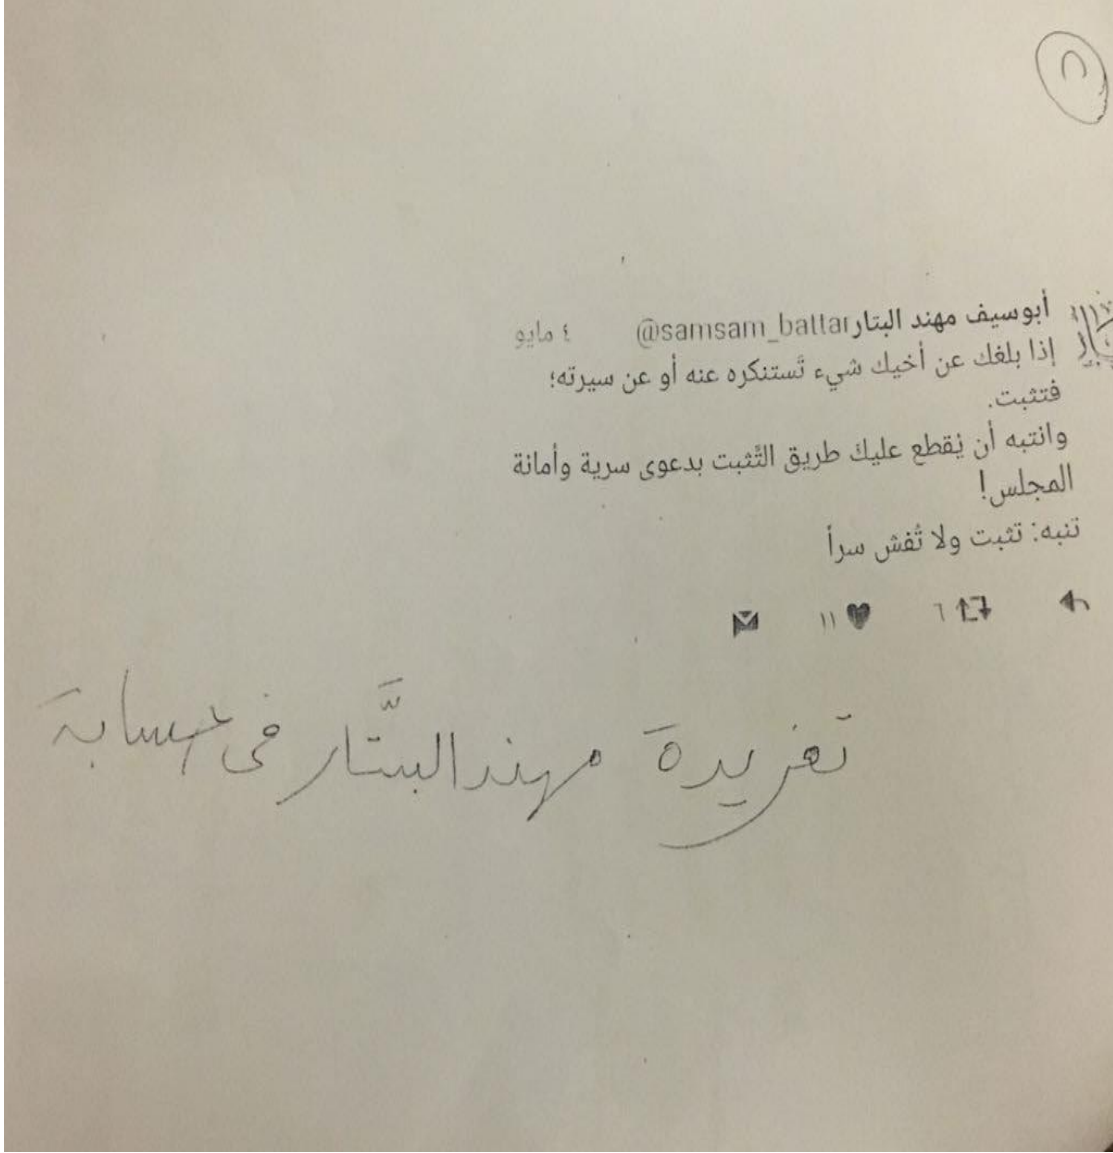 أبوسيف مهند البتار @samsam_battar ٤ مايو
إذا بلغك عن أخيك شيء تَستنكره عنه أو عن سيرته؛
فتثبت.
وانتبه أن يُقطع عليك طريق التَّثبت بدعوى سرية وأمانة
المجلس!
تنبه: تثبت ولا تُفش سراً
٦ ١١
تغريدة مهند البتَّار في حسابة